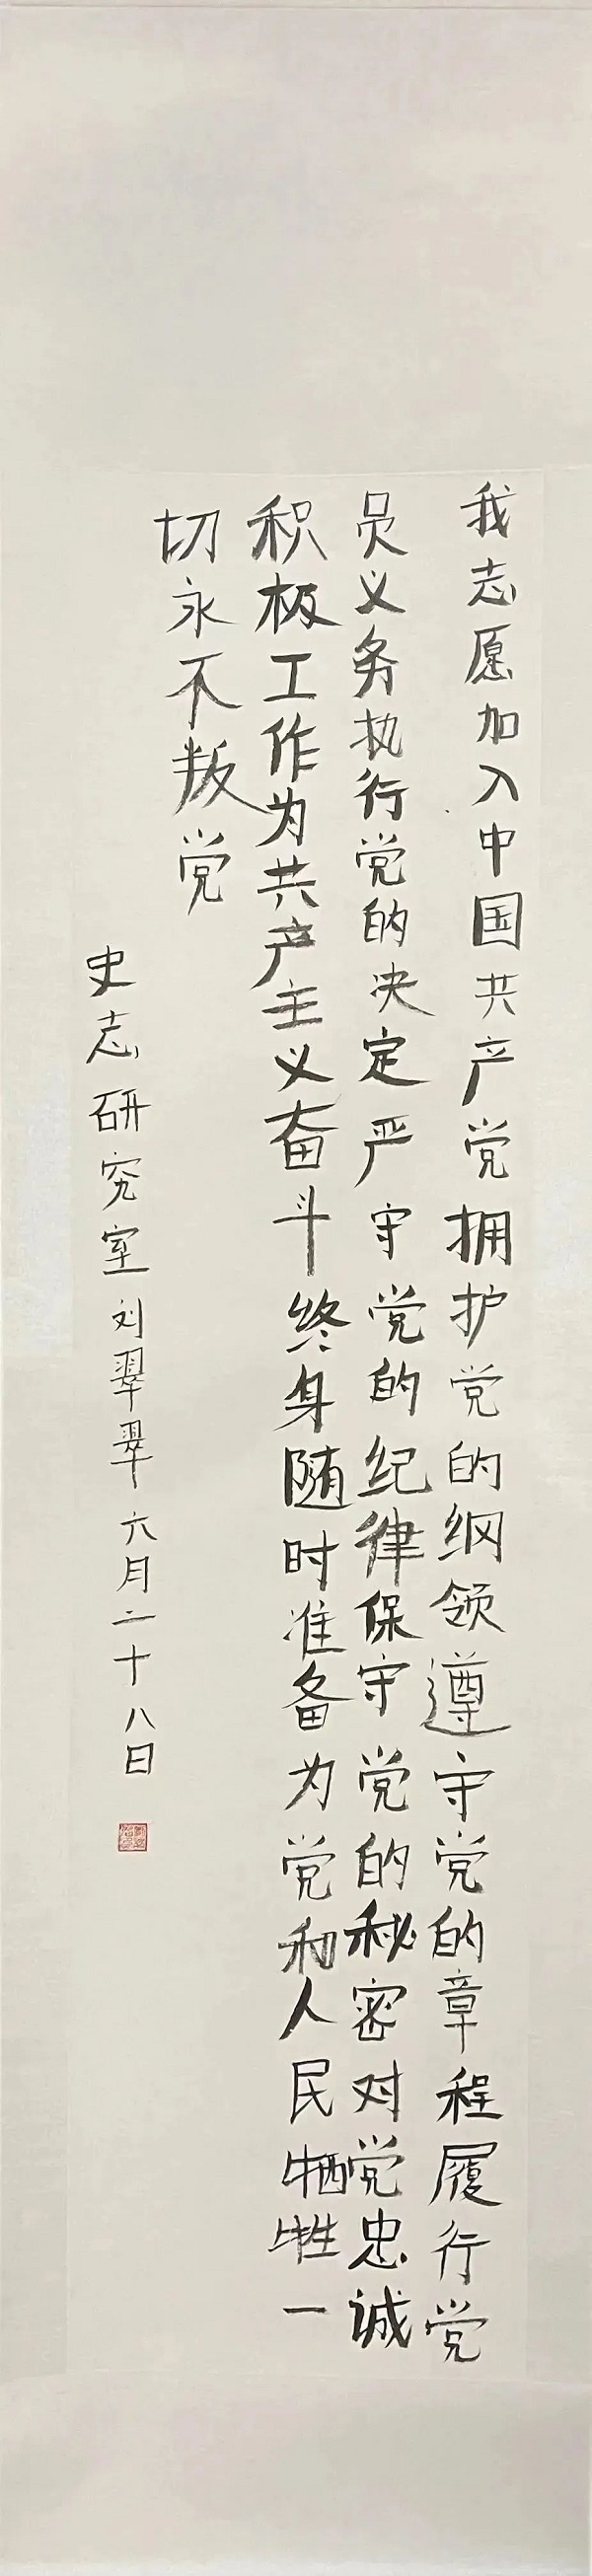 我志愿加入中国共产党拥护党的纲领遵守党的章程履行党
员义务执行党的决定严守党的纪律保守党的秘密对党忠诚
积极工作为共产主义奋斗终身随时准备为党和人民牺牲一
切永不叛党
史志研究室刘翠翠六月二十八日